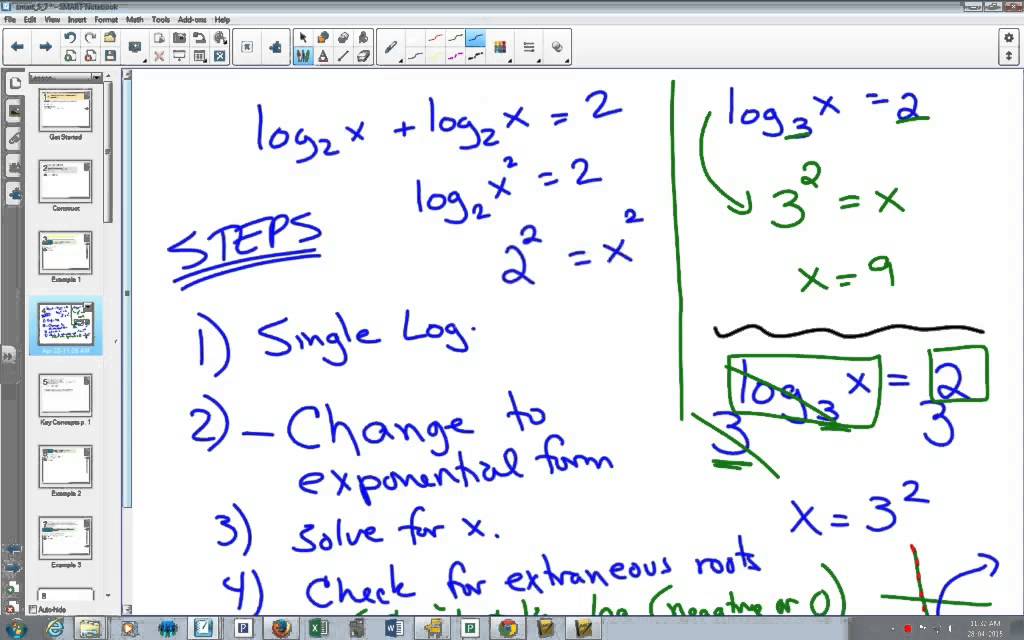 smart_5_7 * - SMART Notebook
File Edit View Insert Format Math Tools Add-ons Help
Get Started
Construct
Example 1
Apr 28-11:26 AM
Key Concepts p. 1
Example 2
Example 3
8
Auto-hide
log₂ x + log₂ x = 2
log₂ x² = 2
2² = x²
STEPS
1) Single Log.
2) - Change to
exponential form
3) Solve for x.
4) Check for extraneous roots
log (negative or 0)
log₃ x = 2
3² = x
x = 9
log₃ x = 2
3 3
x = 3²
11:32 AM
28-04-2015